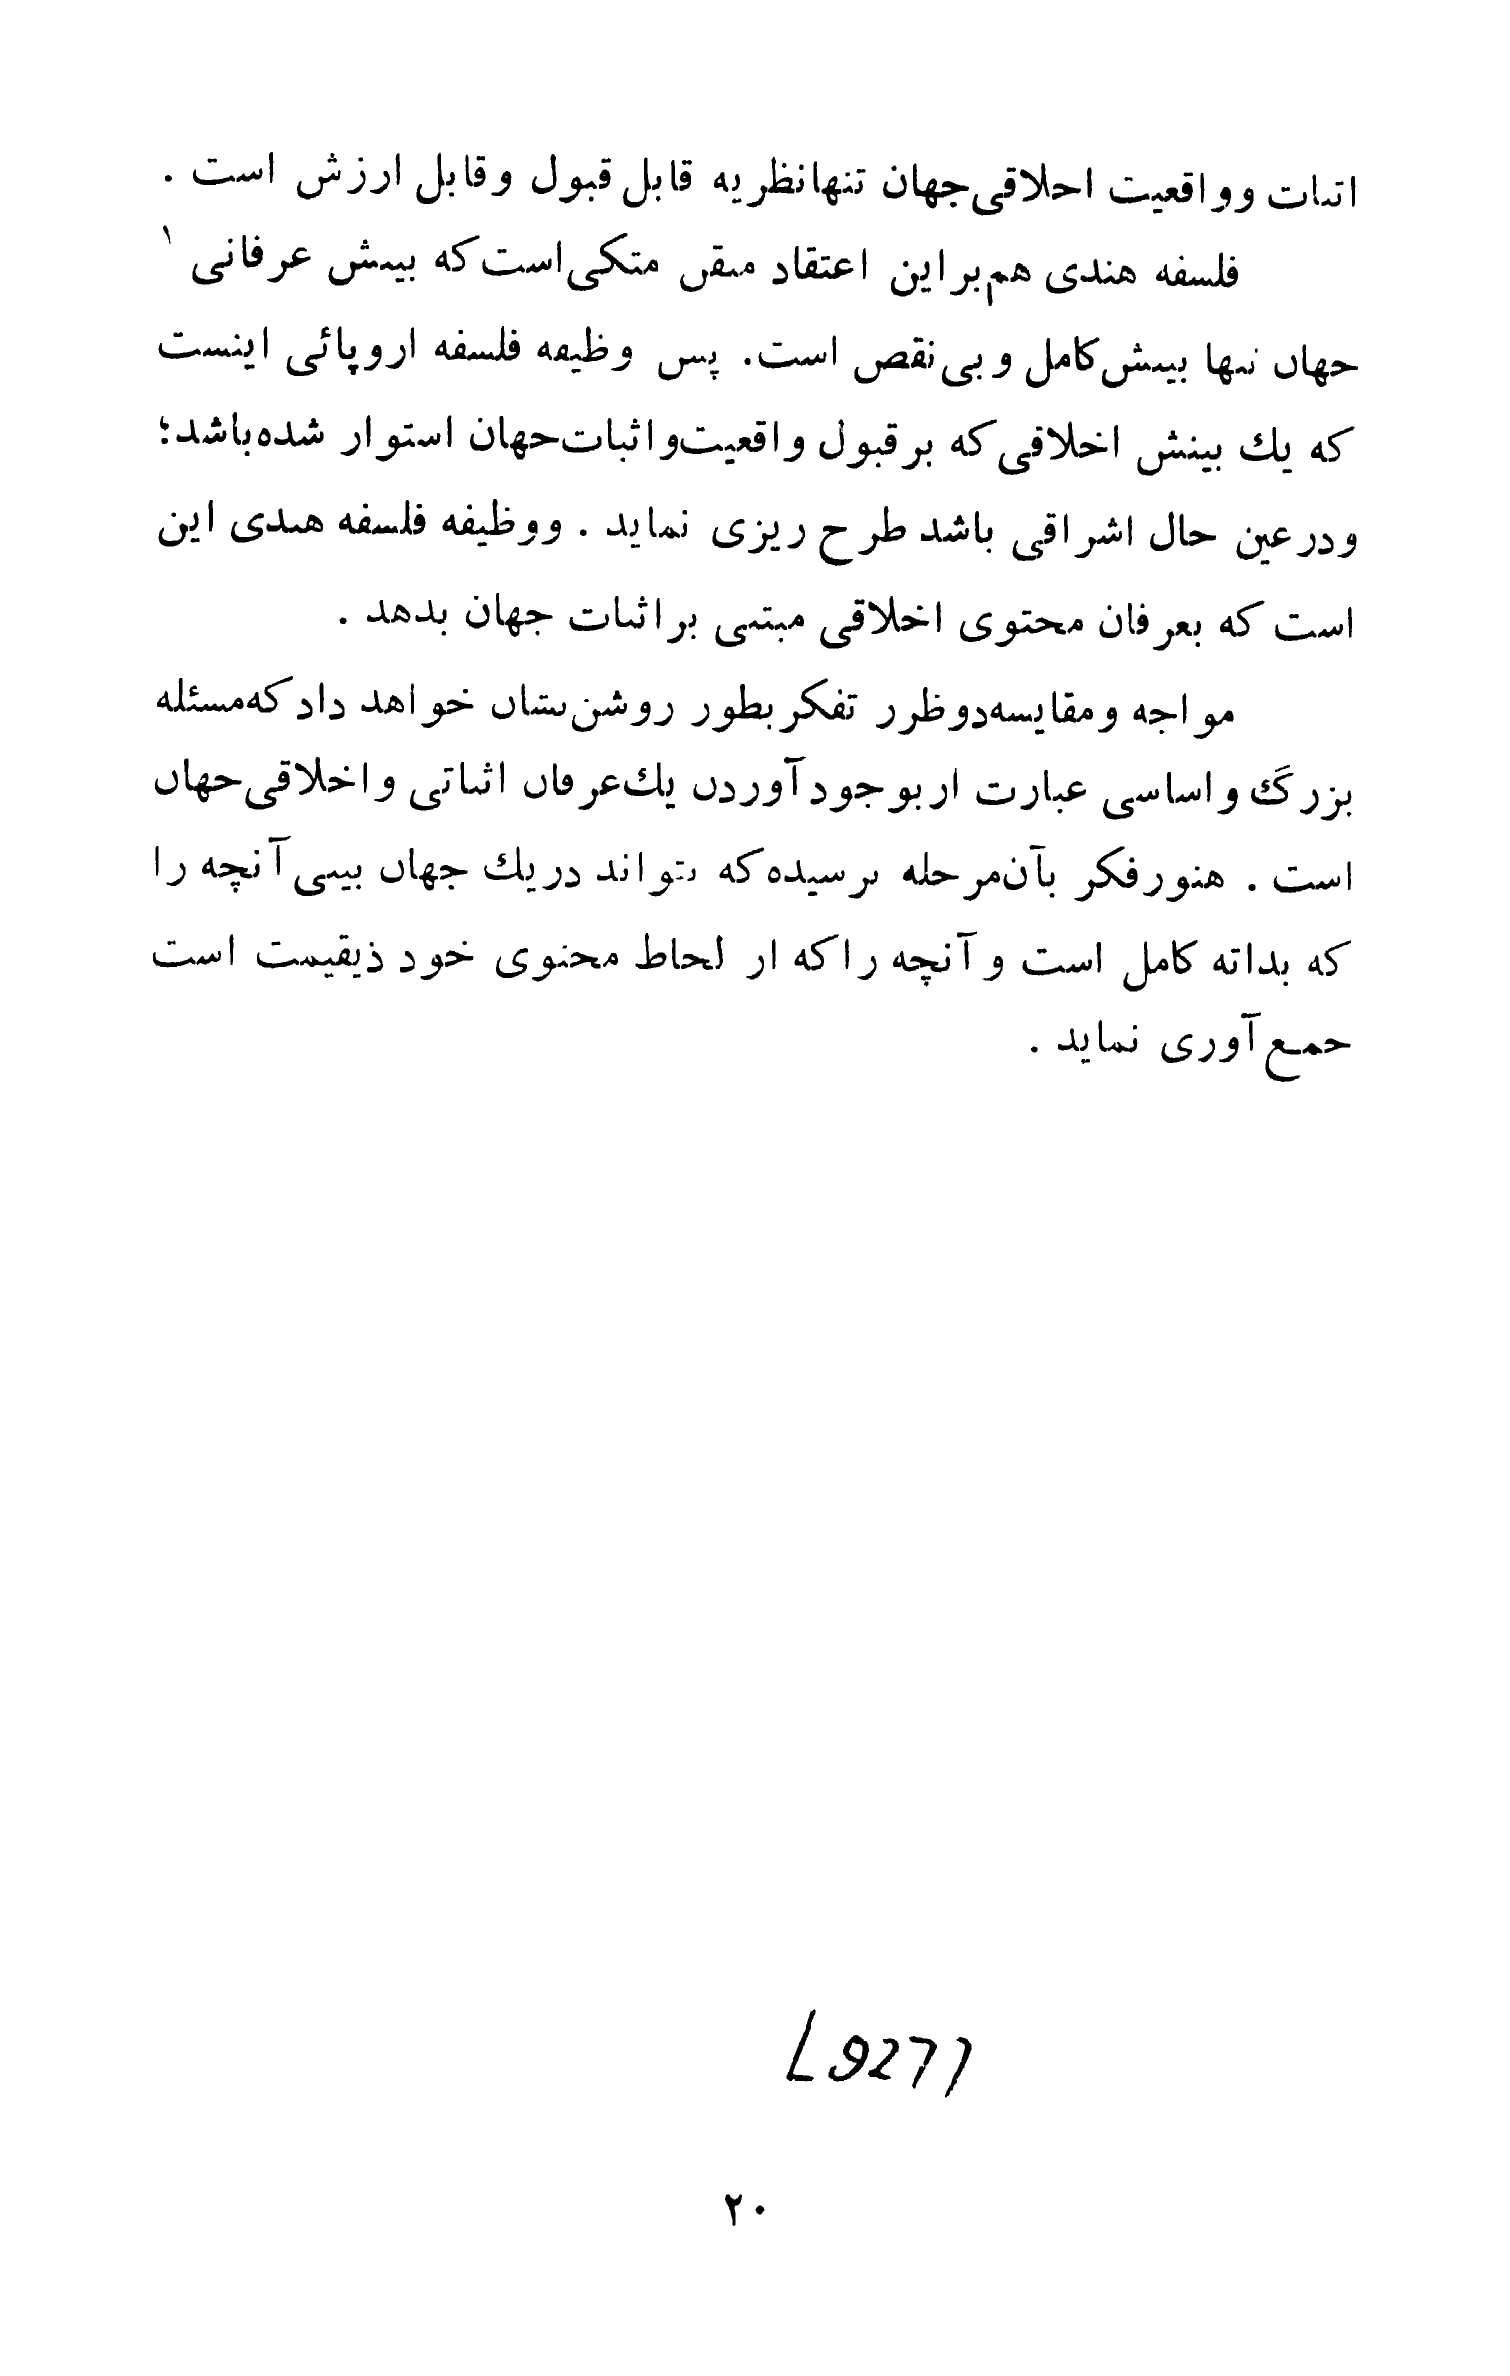 اثبات وواقعیت اخلاقی جهان تنها نظریه قابل قبول وقابل ارزش است .
فلسفه هندی هم براین اعتقاد متقن متکی است که بینش عرفانی ۱
جهان تنها بینش کامل و بی نقص است. پس وظیفه فلسفه اروپائی اینست
که یك بینش اخلاقی که برقبول واقعیت واثبات جهان استوار شده باشد؛
ودرعین حال اشراقی باشد طرح ریزی نماید . ووظیفه فلسفه هندی این
است که بعرفان محتوی اخلاقی مبتنی براثبات جهان بدهد .
مواجه ومقایسه دوطرز تفکر بطور روشن نشان خواهد داد که مسئله
بزرگ و اساسی عبارت از بوجودآوردن یك عرفان اثباتی و اخلاقی جهان
است . هنوز فکر بآن مرحله نرسیده که بتواند دریك جهان بینی آنچه را
که بذاته کامل است و آنچه را که از لحاظ محتوی خود ذیقیمت است
جمع آوری نماید .
۲۰